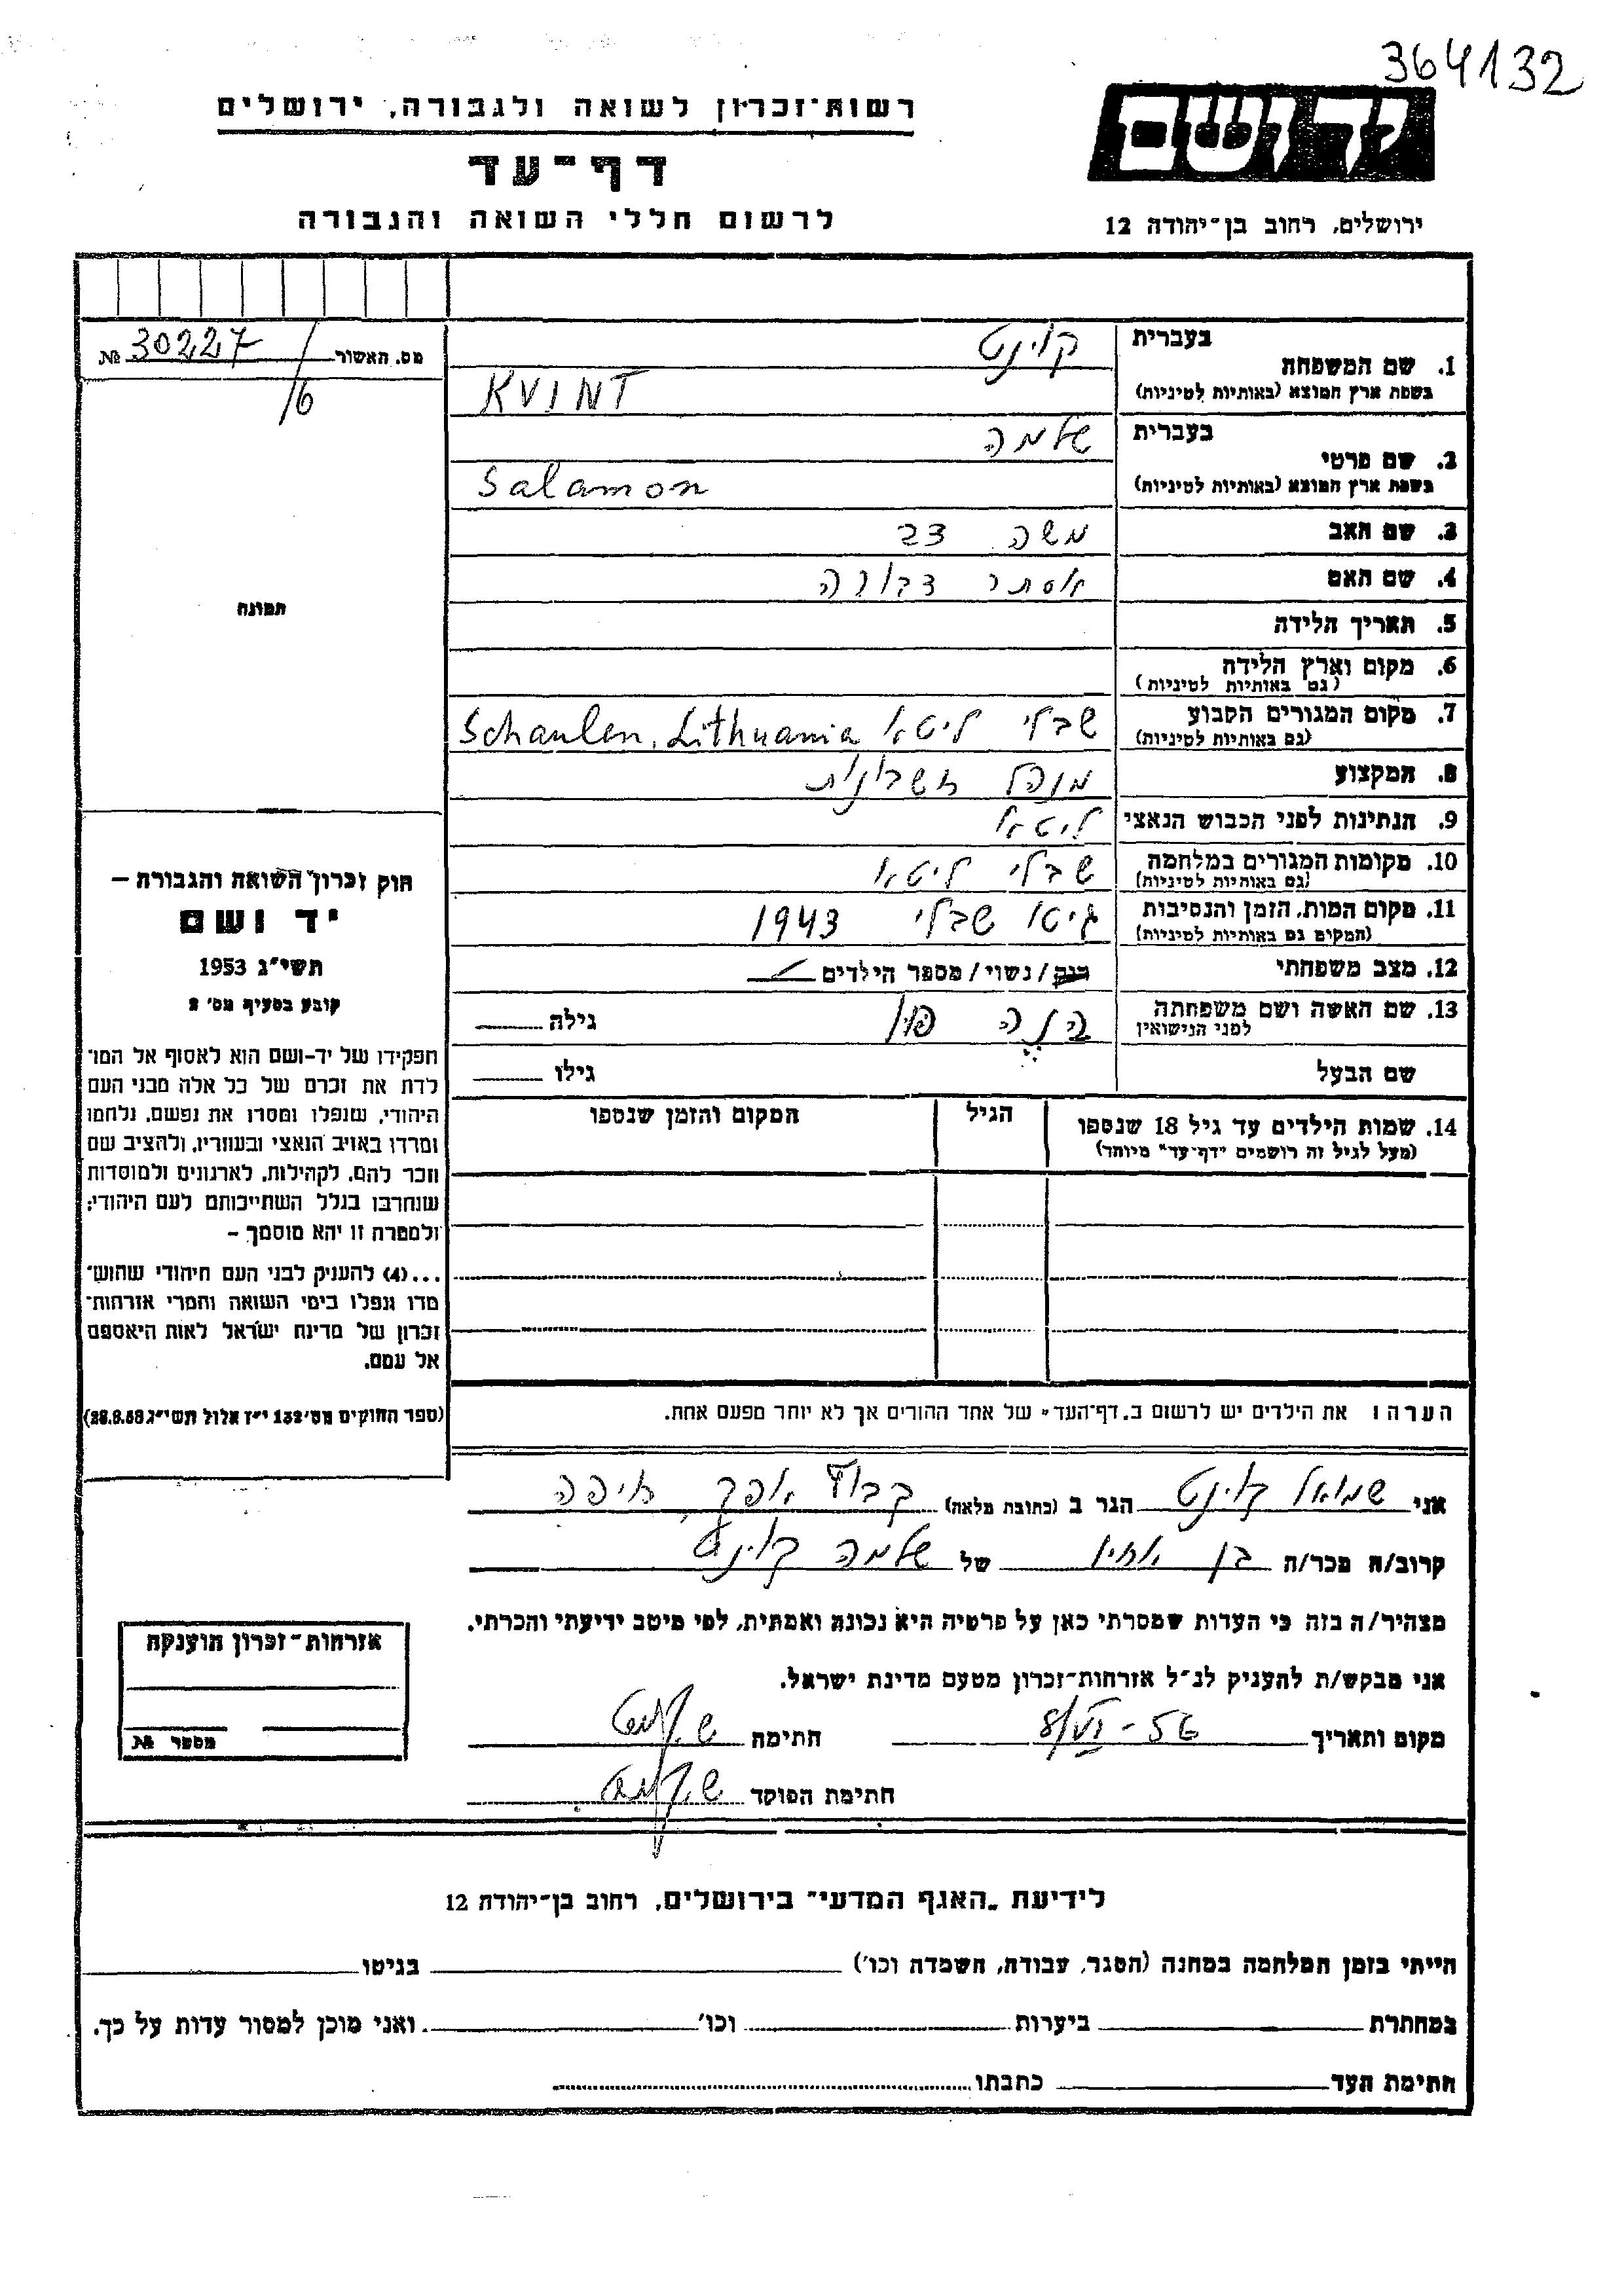 364132
יד ושם
רשות־זכרון לשואה ולגבורה, ירושלים
דף־עד
לרשום חללי השואה והגבורה
ירושלים, רחוב בן־יהודה 12
מס. האשור 30227 №
/6
בעברית קוינט
1. שם המשפחה
בשפת ארץ המוצא (באותיות לטיניות) KVINT
בעברית שלמה
2. שם פרטי
בשפת ארץ המוצא (באותיות לטיניות) Salamon
3. שם האב משה
4. שם האם אסתר דבורה
5. תאריך הלידה
6. מקום וארץ הלידה
(גם באותיות לטיניות)
7. מקום המגורים הקבוע שבלי ליטא Schaulen, Lithuania
(גם באותיות לטיניות)
8. המקצוע מנהל חשבונות
9. הנתינות לפני הכבוש הנאצי ליטא
10. מקומות המגורים במלחמה שבלי ליטא
(גם באותיות לטיניות)
11. מקום המות, הזמן והנסיבות גיטו שבלי 1943
(המקום גם באותיות לטיניות)
12. מצב משפחתי רוק/נשוי/מספר הילדים
13. שם האשה ושם משפחתה
לפני הנישואין
גילה
שם הבעל גילו
14. שמות הילדים עד גיל 18 שנספו הגיל המקום והזמן שנספו
(מעל לגיל זה רושמים "דף־עד" מיוחד)
תמונה
חוק זכרון השואה והגבורה –
יד ושם
תשי"ג 1953
קובע בסעיף מס' 2
תפקידו של יד-ושם הוא לאסוף אל המו־
לדת את זכרם של כל אלה מבני העם
היהודי, שנפלו ומסרו את נפשם, נלחמו
ומרדו באויב הנאצי ובעוזריו, ולהציב שם
וזכר להם, לקהילות, לארגונים ולמוסדות
שנחרבו בגלל השתייכותם לעם היהודי;
ולמטרה זו יהא מוסמך –
...(4) להעניק לבני העם היהודי שהוש־
מדו ונפלו בימי השואה והמרי אזרחות־
זכרון של מדינת ישראל לאות היאספם
אל עמם.
(ספר החוקים מס' 132 י"ז אלול תשי"ג 28.8.53)
הערה: את הילדים יש לרשום ב„דף־העד" של אחד ההורים אך לא יותר מפעם אחת.
אני שמואל קוינט הגר ב (כתובת מלאה) קבוץ אפק, חיפה
קרוב/ה מכר/ה בן אחיו של שלמה קוינט
מצהיר/ה בזה כי העדות שמסרתי כאן על פרטיה היא נכונה ואמתית, לפי מיטב ידיעתי והכרתי.
אני מבקש/ת להעניק לנ"ל אזרחות־זכרון מטעם מדינת ישראל.
מקום ותאריך 8/VI-56 חתימה ש. קוינט
חתימת הפוקד ש. קוינט
אזרחות־זכרון הוענקה
מספר №
לידיעת „האגף המדעי" בירושלים, רחוב בן־יהודה 12
הייתי בזמן המלחמה במחנה (הסגר, עבודה, השמדה וכו') בגיטו
במחתרת ביערות וכו' ואני מוכן למסור עדות על כך.
חתימת העד כתבתו